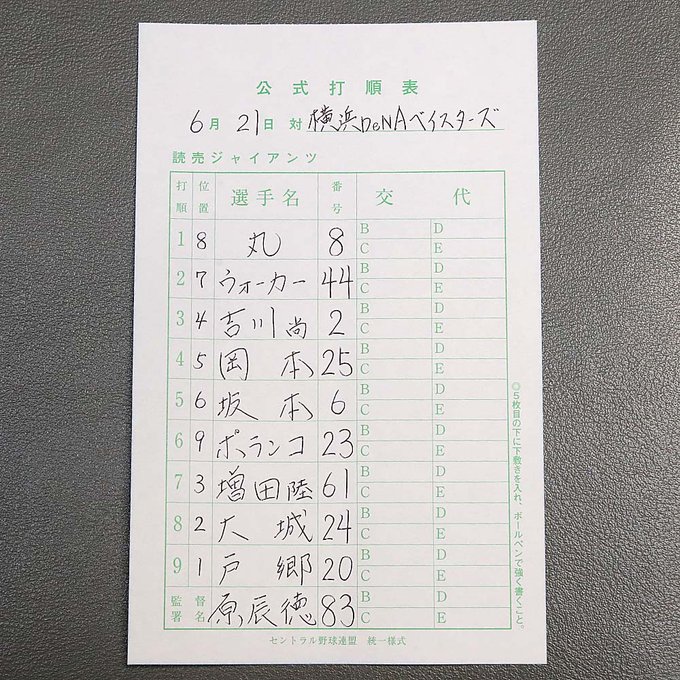 公式打順表
6月21日 対 横浜DeNAベイスターズ
読売ジャイアンツ
打順 位置 選手名 番号 交代
1 8 丸 8 B D C E
2 7 ウォーカー 44 B D C E
3 4 吉川尚 2 B D C E
4 5 岡本 25 B D C E
5 6 坂本 6 B D C E
6 9 ポランコ 23 B D C E
7 3 増田陸 61 B D C E
8 2 大城 24 B D C E
9 1 戸郷 20 B D C E
監督署名 原辰徳 83 B D C E
◎5枚目の下に下敷きを入れ、ボールペンで強く書くこと。
セントラル野球連盟 統一様式